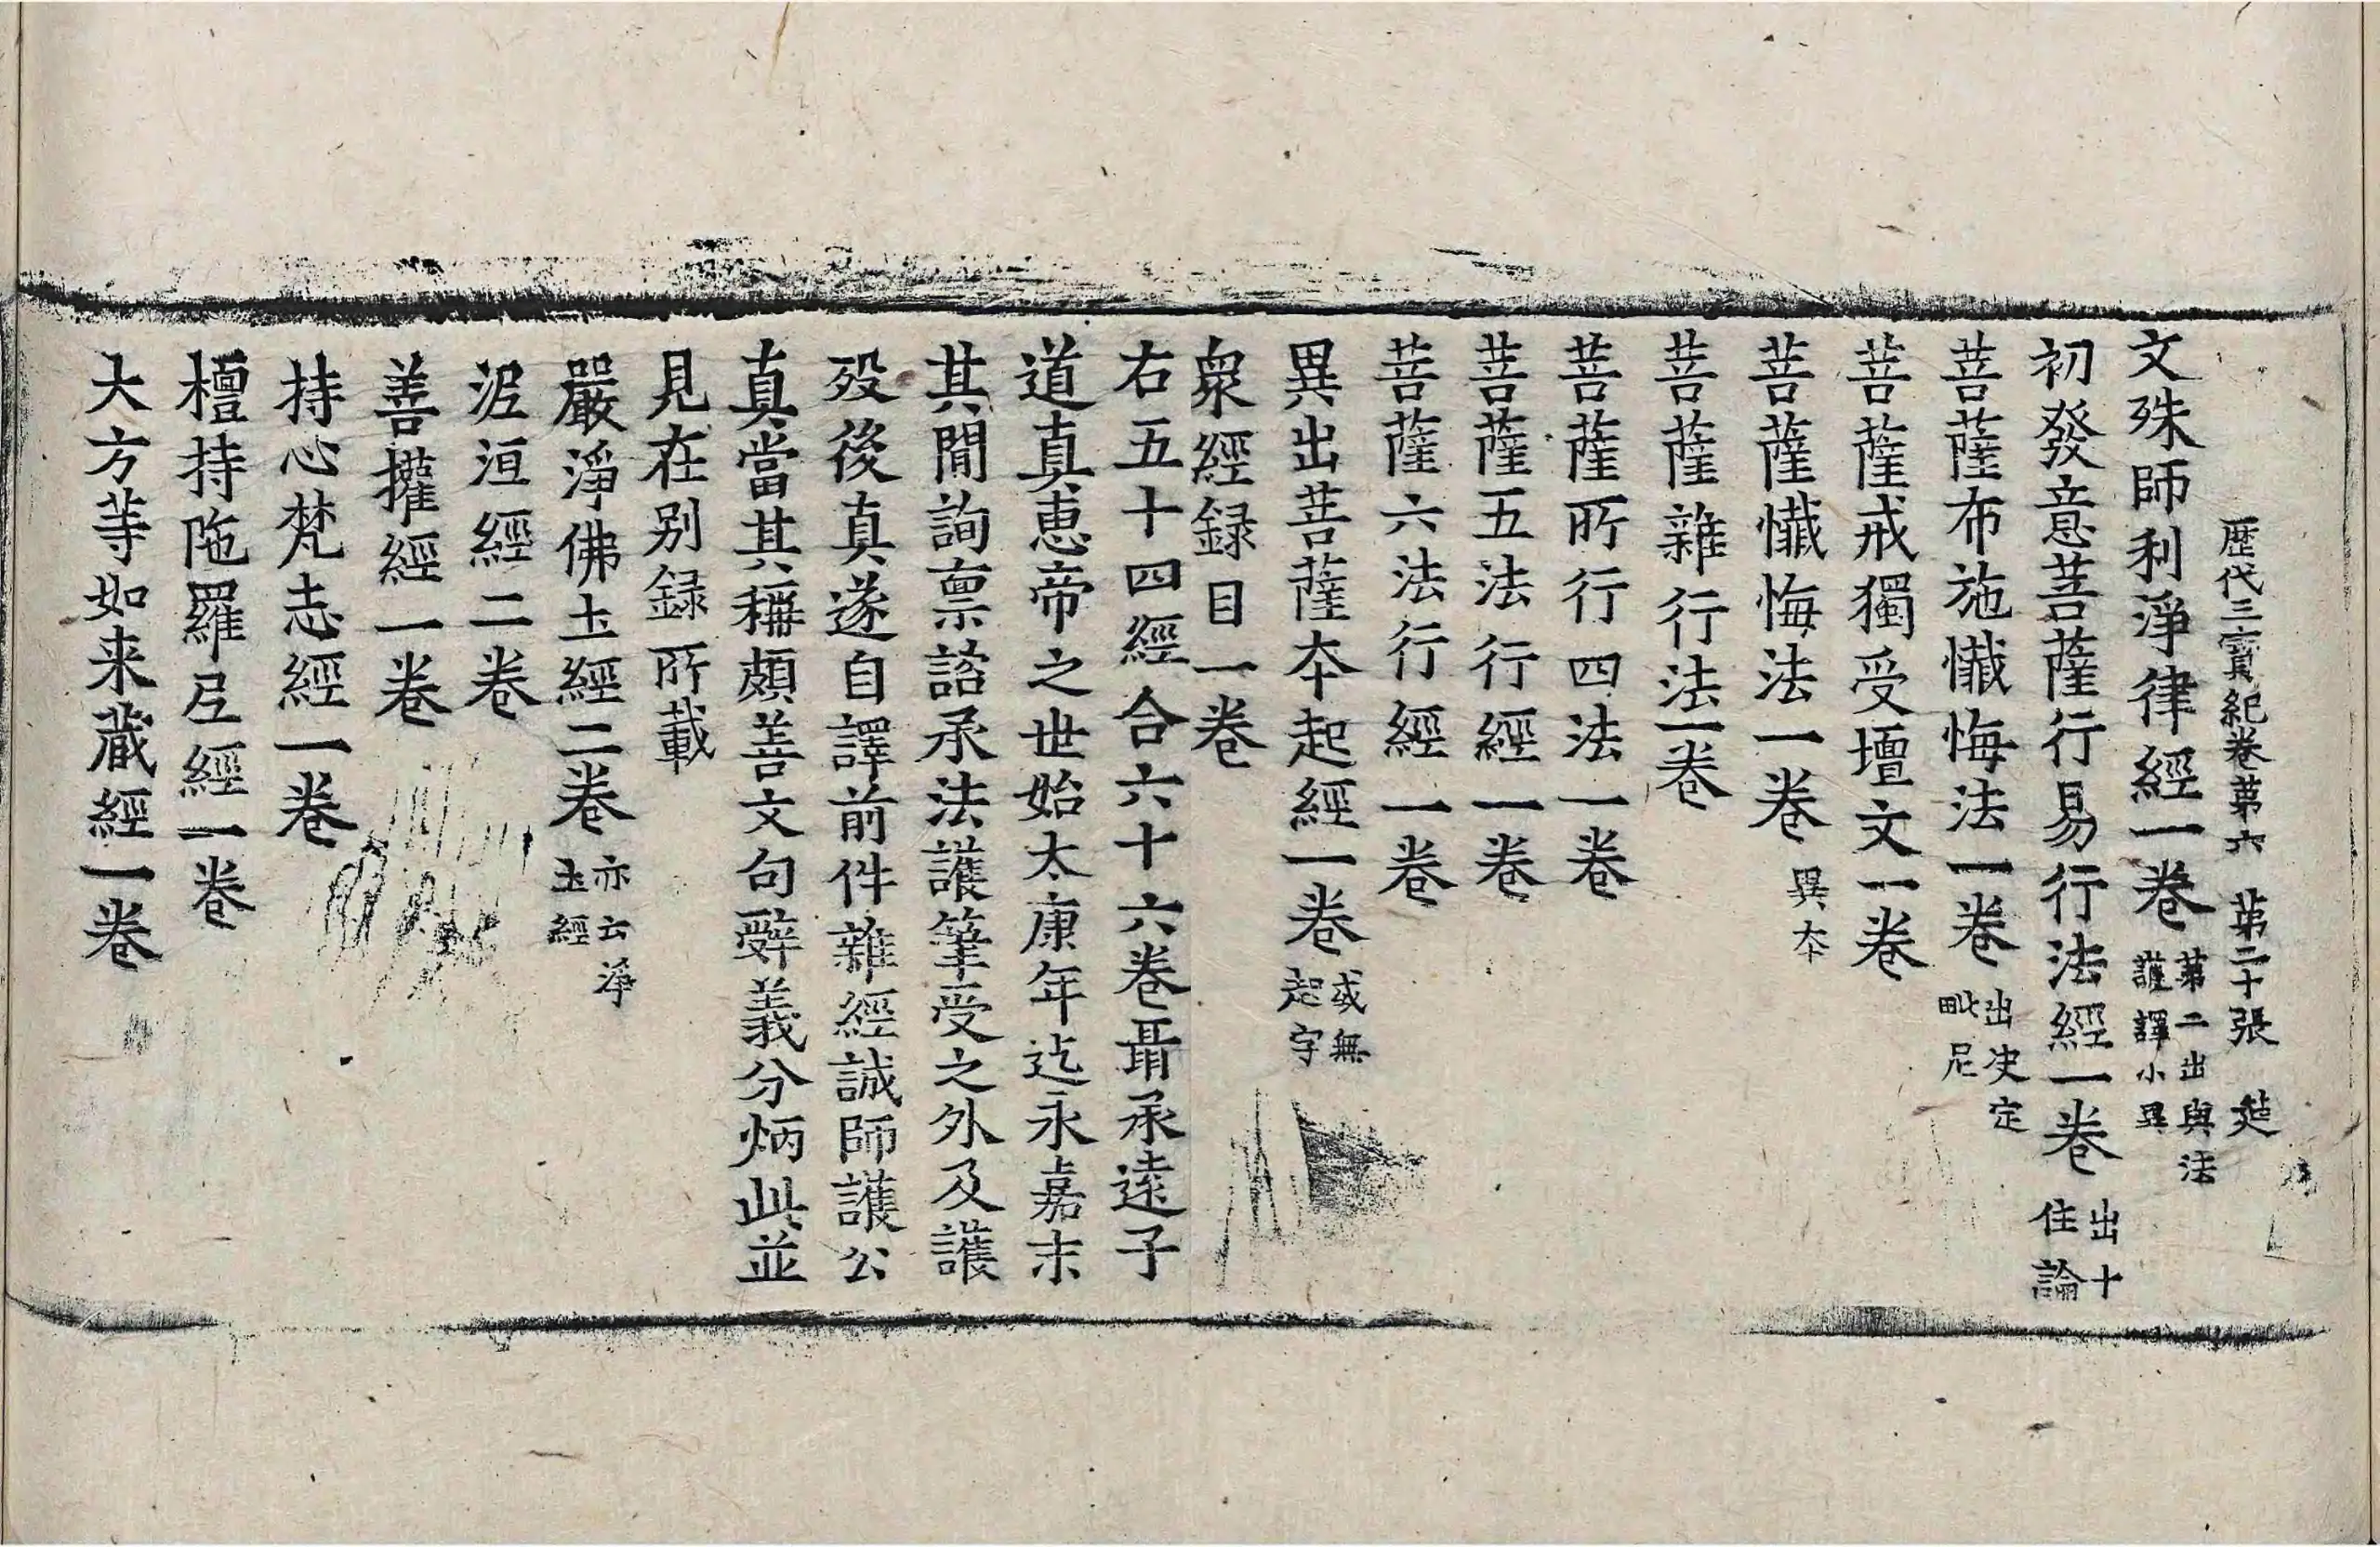 歴代三寳紀卷苐六 苐二十張 𨒪
文殊師利淨律經一卷 苐二出與法護譯小異
初發意菩薩行易行法經一卷 出十住論
菩薩布施懺悔法一卷 出决定毗尼
菩薩戒獨受壇文一卷
菩薩懺悔法一卷 異夲
菩薩雜行法一卷
菩薩所行四法一卷
菩薩五法行經一卷
菩薩六法行經一卷
異出菩薩夲起經一卷 或無起字
衆經録目一卷
右五十四經合六十六卷聶承逺子
道真惠帝之世始太康年迄永嘉末
其閒詢禀諮承法護筆受之外及護
殁後真遂自譯前件雜經誠師護公
真當其稱頗善文句辝義分炳此並
見在别録所載
嚴淨佛土經二卷 亦云淨土經
泥洹經二卷
善攉經一卷
持心梵志經一卷
檀持陁羅尼經一卷
大方等如来藏經一卷